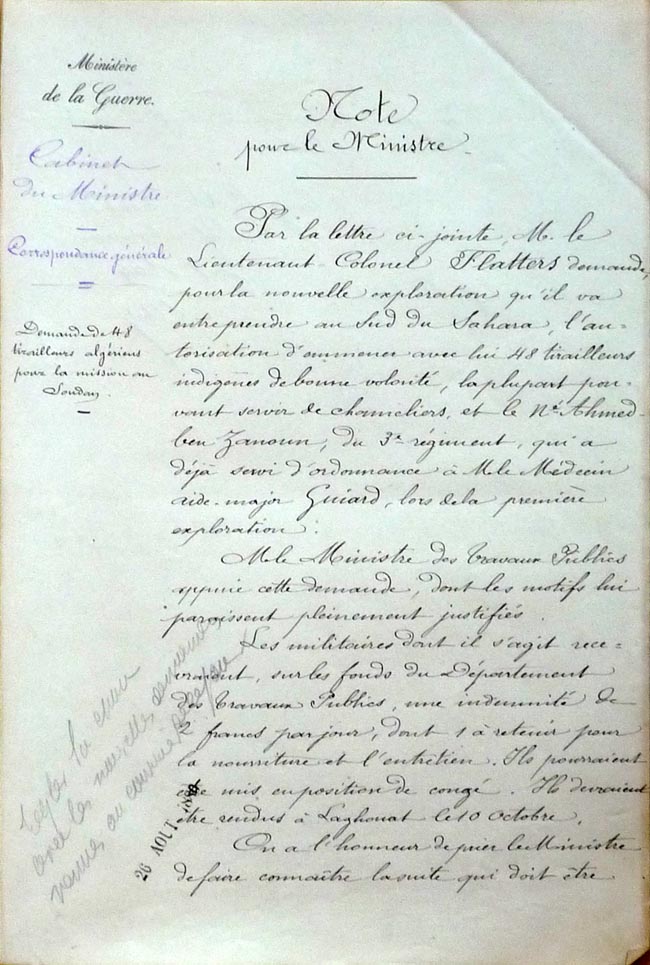 Ministère
de la Guerre.
Cabinet
du Ministre
Correspondance générale
Demande de 48
tirailleurs algériens
pour la mission au
Soudan
Note
pour le Ministre.
Par la lettre ci-jointe, M. le
Lieutenant-Colonel Flatters demande,
pour la nouvelle exploration qu'il va
entreprendre au Sud du Sahara, l'au-
torisation d'emmener avec lui 48 tirailleurs
indigènes de bonne volonté, la plupart pou-
vant servir de chameliers, et le Né Ahmed-
ben Zanoun, du 3e régiment, qui a
déjà servi d'ordonnance à M. le Médecin
aide-major Guiard, lors de la première
exploration.
M. le Ministre des Travaux Publics
appuie cette demande, dont les motifs lui
paraissent pleinement justifiés.
Les militaires dont il s'agit rece-
vraient, sur les fonds du Département
des Travaux Publics, une indemnité de
2 francs par jour, dont 1 à retenir pour
la nourriture et l'entretien. Ils pourraient
être mis en position de congé. Ils devraient
être rendus à Laghouat le 10 octobre.
On a l'honneur de prier le Ministre
de faire connaître la suite qui doit être
26 AOUT 1880
la
avec les nouvelles
au